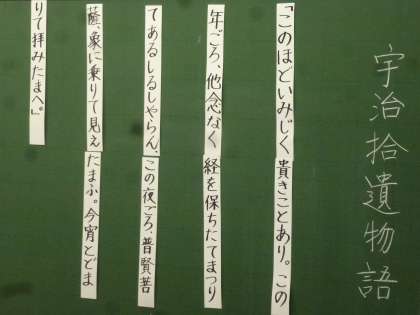 宇治拾遺物語
「このほどいみじく貴きことあり。この
年ごろ、他念なく経を保ちたてまつり
てあるしるしやらん、この夜ごろ、普賢菩
薩、象に乗りて見えたまふ。今宵とどま
りて拝みたまへ。」